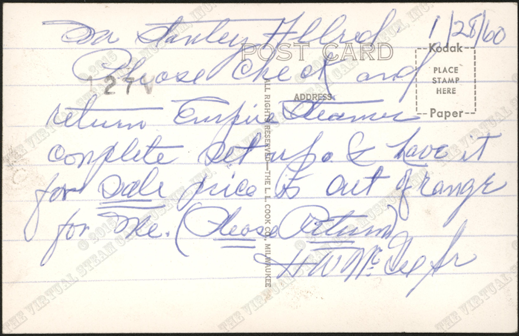 1/28/60
Mr Stanley Ellred
POST CARD
Kodak
PLACE
STAMP
HERE
Paper
Please Check and
127V
ADDRESS
return Empire Steamer
complete set up. I have it
for sale price is out of range
for me. (Please Return)
H W McGee Jr
ALL RIGHTS RESERVED—THE L. L. COOK CO., MILWAUKEE
THE VIRTUAL STEAM